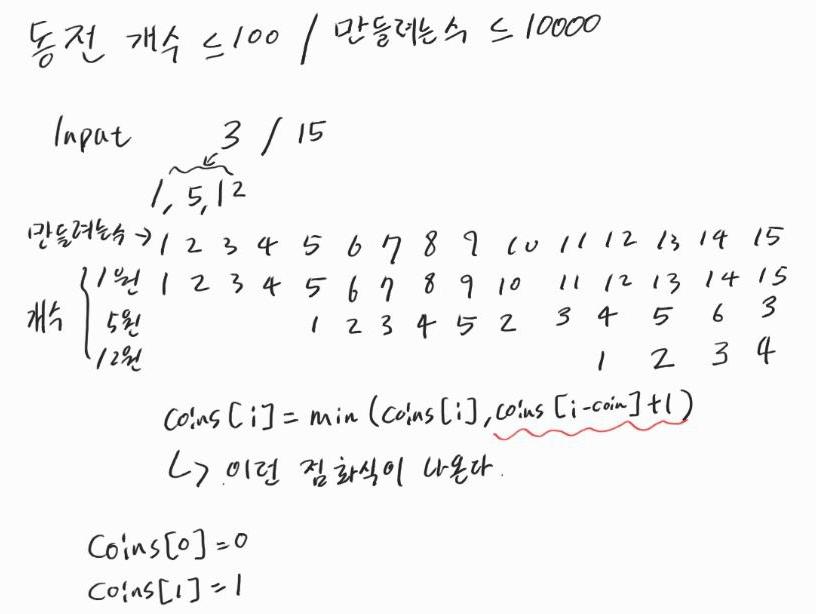 동전 개수 ≤100 / 만들려는수 ≤ 10000
Input 3 / 15
1, 5, 12
만들려는수 → 1 2 3 4 5 6 7 8 9 10 11 12 13 14 15
1원 1 2 3 4 5 6 7 8 9 10 11 12 13 14 15
개수 5원 1 2 3 4 5 2 3 4 5 6 3
12원 1 2 3 4
coins[i] = min (coins[i], coins [i-coin]+1)
↳ 이런 점화식이 나온다.
Coins[0]=0
coins[1]=1